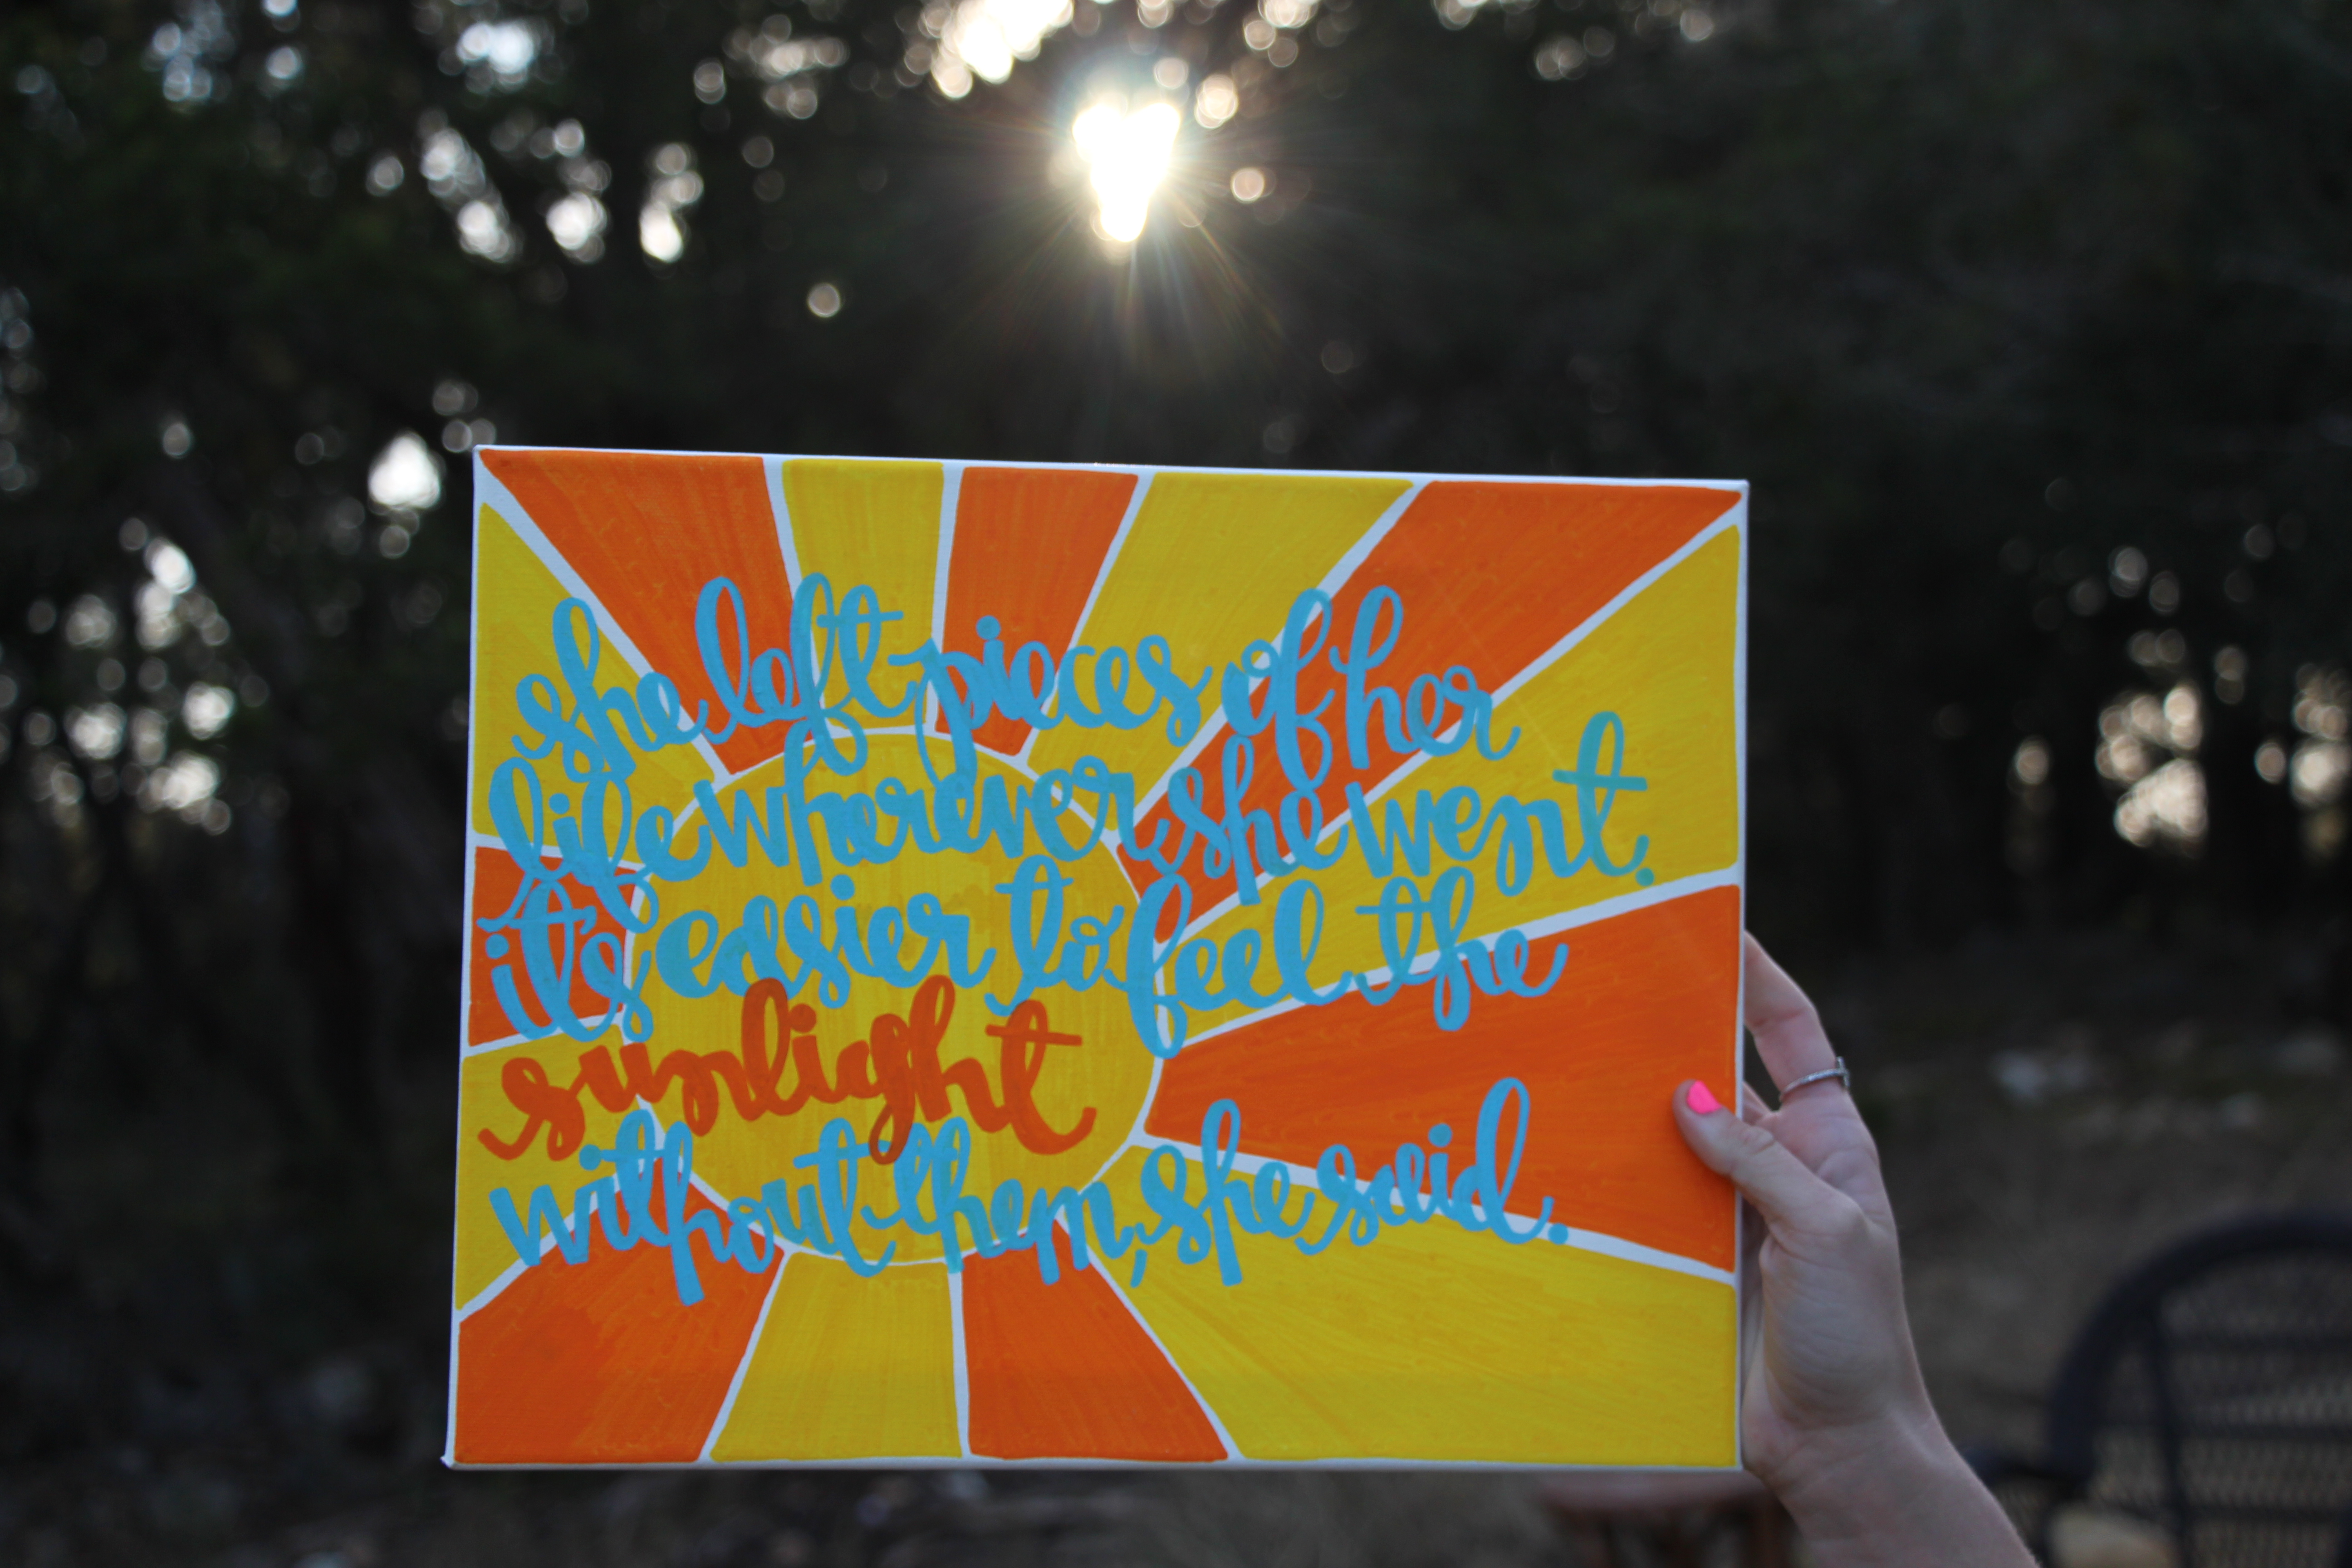 she left pieces of her
life wherever she went.
it's easier to feel the
sunlight
without them, she said.